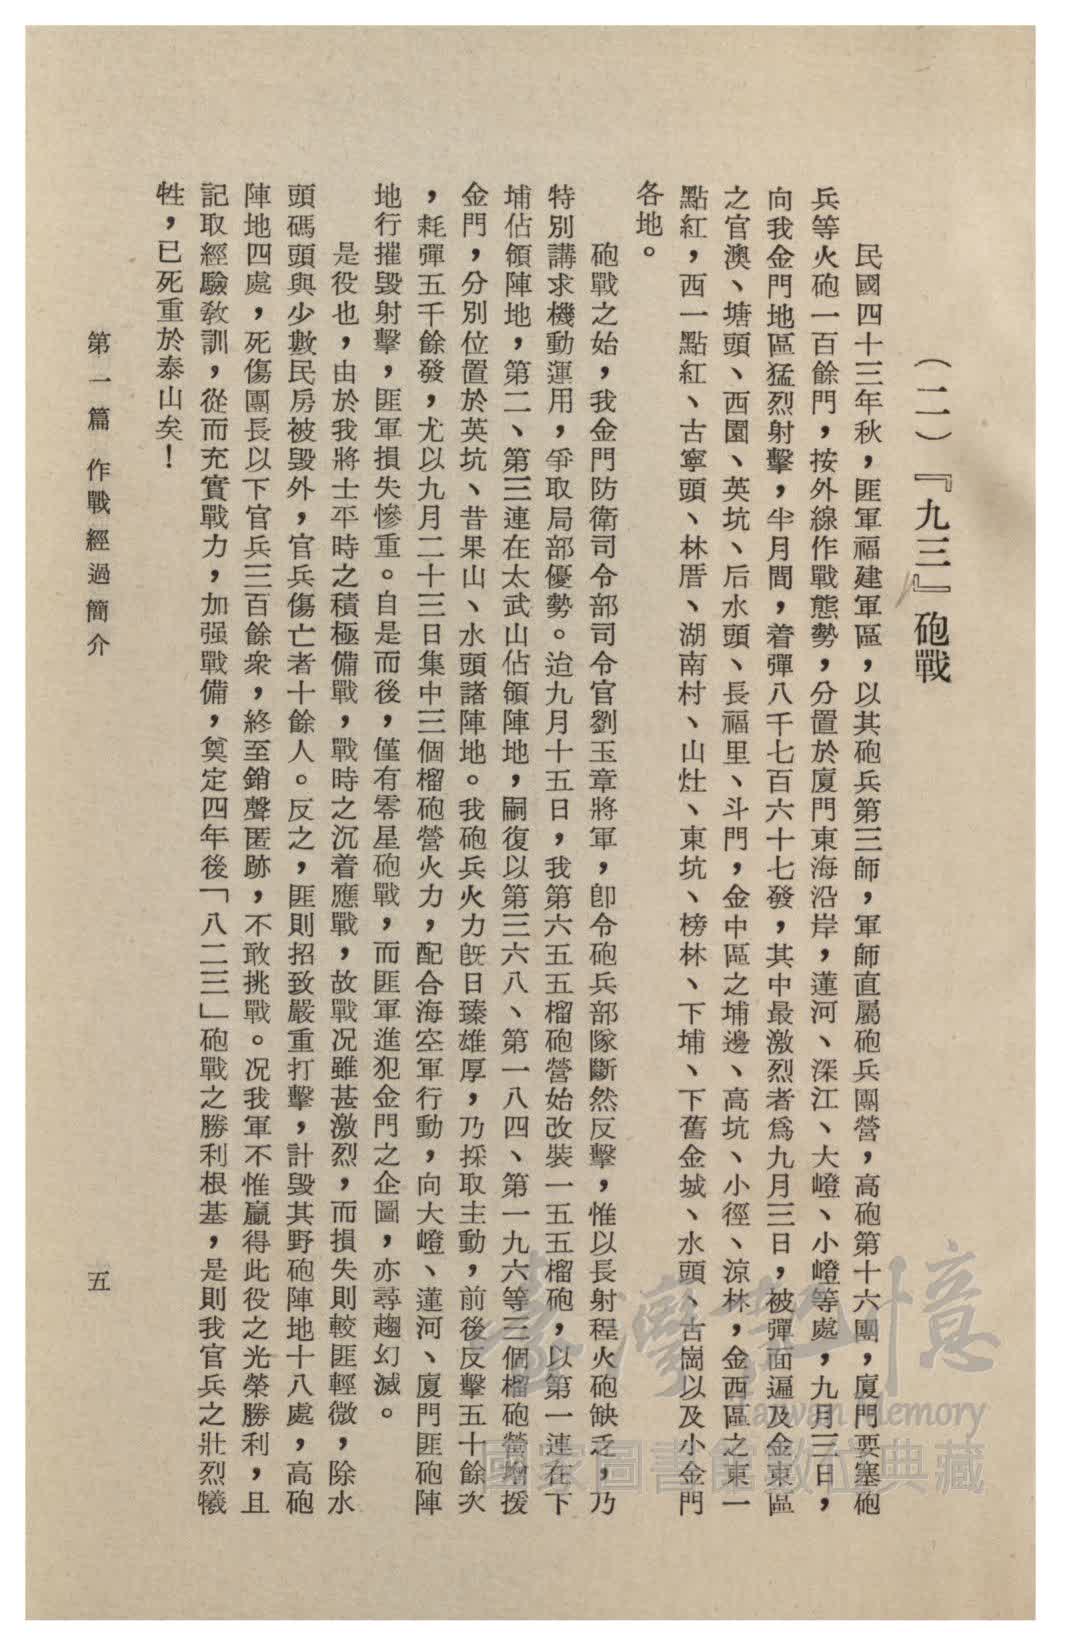 （二）『九三』砲戰
民國四十三年秋，匪軍福建軍區，以其砲兵第三師，軍師直屬砲兵團營，高砲第十六團，廈門要塞砲
兵等火砲一百餘門，按外線作戰態勢，分置於廈門東海沿岸，蓮河、深江、大嶝、小嶝等處，九月三日，
向我金門地區猛烈射擊，半月間，着彈八千七百六十七發，其中最激烈者爲九月三日，被彈面遍及金東區
之官澳、塘頭、西園、英坑、后水頭、長福里、斗門，金中區之埔邊、高坑、小徑、涼林，金西區之東一
點紅，西一點紅、古寧頭、林厝、湖南村、山灶、東坑、榜林、下埔、下舊金城、水頭、古崗以及小金門
各地。
砲戰之始，我金門防衛司令部司令官劉玉章將軍，卽令砲兵部隊斷然反擊，惟以長射程火砲缺乏，乃
特別講求機動運用，爭取局部優勢。迨九月十五日，我第六五五榴砲營始改裝一五五榴砲，以第一連在下
埔佔領陣地，第二、第三連在太武山佔領陣地，嗣復以第三六八、第一八四、第一九六等三個榴砲營增援
金門，分別位置於英坑、昔果山、水頭諸陣地。我砲兵火力旣日臻雄厚，乃採取主動，前後反擊五十餘次
，耗彈五千餘發，尤以九月二十三日集中三個榴砲營火力，配合海空軍行動，向大嶝、蓮河、廈門匪砲陣
地行摧毀射擊，匪軍損失慘重。自是而後，僅有零星砲戰，而匪軍進犯金門之企圖，亦尋趨幻滅。
是役也，由於我將士平時之積極備戰，戰時之沉着應戰，故戰况雖甚激烈，而損失則較匪輕微，除水
頭碼頭與少數民房被毀外，官兵傷亡者十餘人。反之，匪則招致嚴重打擊，計毀其野砲陣地十八處，高砲
陣地四處，死傷團長以下官兵三百餘衆，終至銷聲匿跡，不敢挑戰。况我軍不惟贏得此役之光榮勝利，且
記取經驗敎訓，從而充實戰力，加强戰備，奠定四年後「八二三」砲戰之勝利根基，是則我官兵之壯烈犧
牲，已死重於泰山矣！
第一篇 作戰經過簡介
五
臺灣記憶
Taiwan Memory
國家圖書館數位典藏